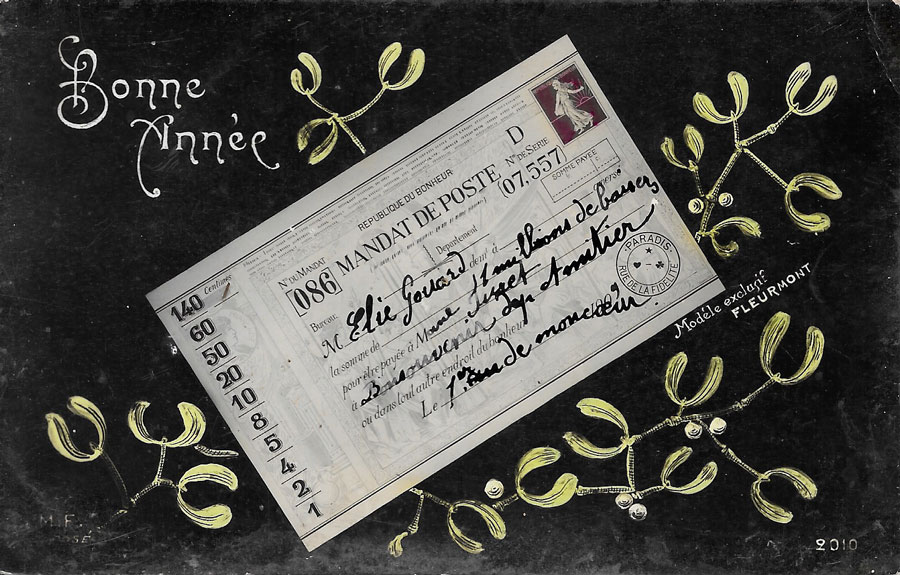 Bonne
Année
REPUBLIQUE DU BONHEUR
N° DU MANDAT
086
MANDAT DE POSTE
D
N° DE SERIE
(07.557)
SOMME PAYÉE
F. C.
Département
Bureau
M. Elie Gouard doit à
la somme de 11 millions de baisers
pour être payée à Marie Juget
à Bonsouvenir Dep Amitier
ou dans tout autre endroit du bonheur
Le 1er rue de mon cœur 190
PARADIS
RUE DE LA FIDELITÉ
Centimes
140
60
50
20
10
8
5
4
2
1
Modèle exclusif
FLEURMONT
M. F.
2010